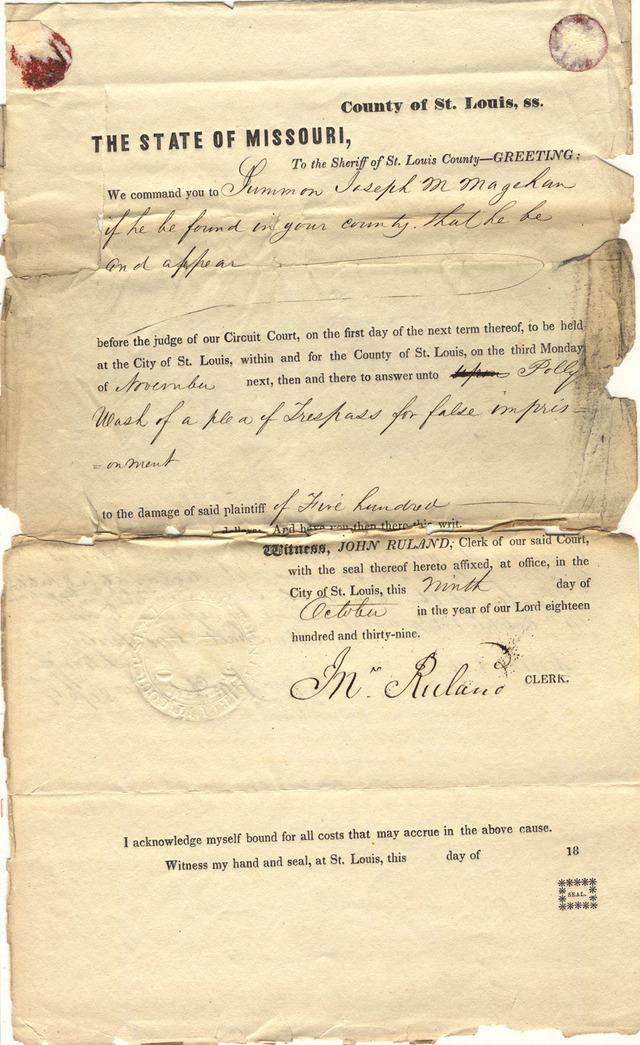 County of St. Louis, ss.
THE STATE OF MISSOURI,
To the Sheriff of St. Louis County—GREETING:
We command you to Summon Joseph M Magehan
if he be found in your county. that he be
and appear
before the judge of our Circuit Court, on the first day of the next term thereof, to be held
at the City of St. Louis, within and for the County of St. Louis, on the third Monday
of November next, then and there to answer unto Polly
Wash of a plea of Trespass for false impris=
=onment
to the damage of said plaintiff of Five hundred
dollars: And have you then there this writ.
Witness, JOHN RULAND, Clerk of our said Court,
with the seal thereof hereto affixed, at office, in the
City of St. Louis, this Ninth day of
October in the year of our Lord eighteen
hundred and thirty-nine.
Jnº Ruland CLERK.
I acknowledge myself bound for all costs that may accrue in the above cause.
Witness my hand and seal, at St. Louis, this day of 18
SEAL.